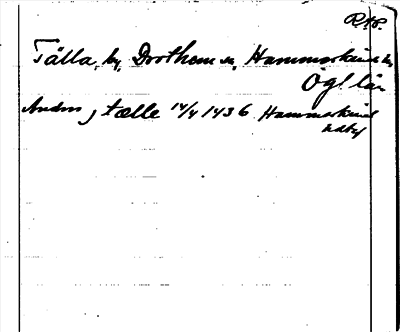 R.A.P.
Tälla, by, Drothem sn, Hammarkinds hd
Ögl. län
Anders j tælle 14/4 1436 Hammarkind